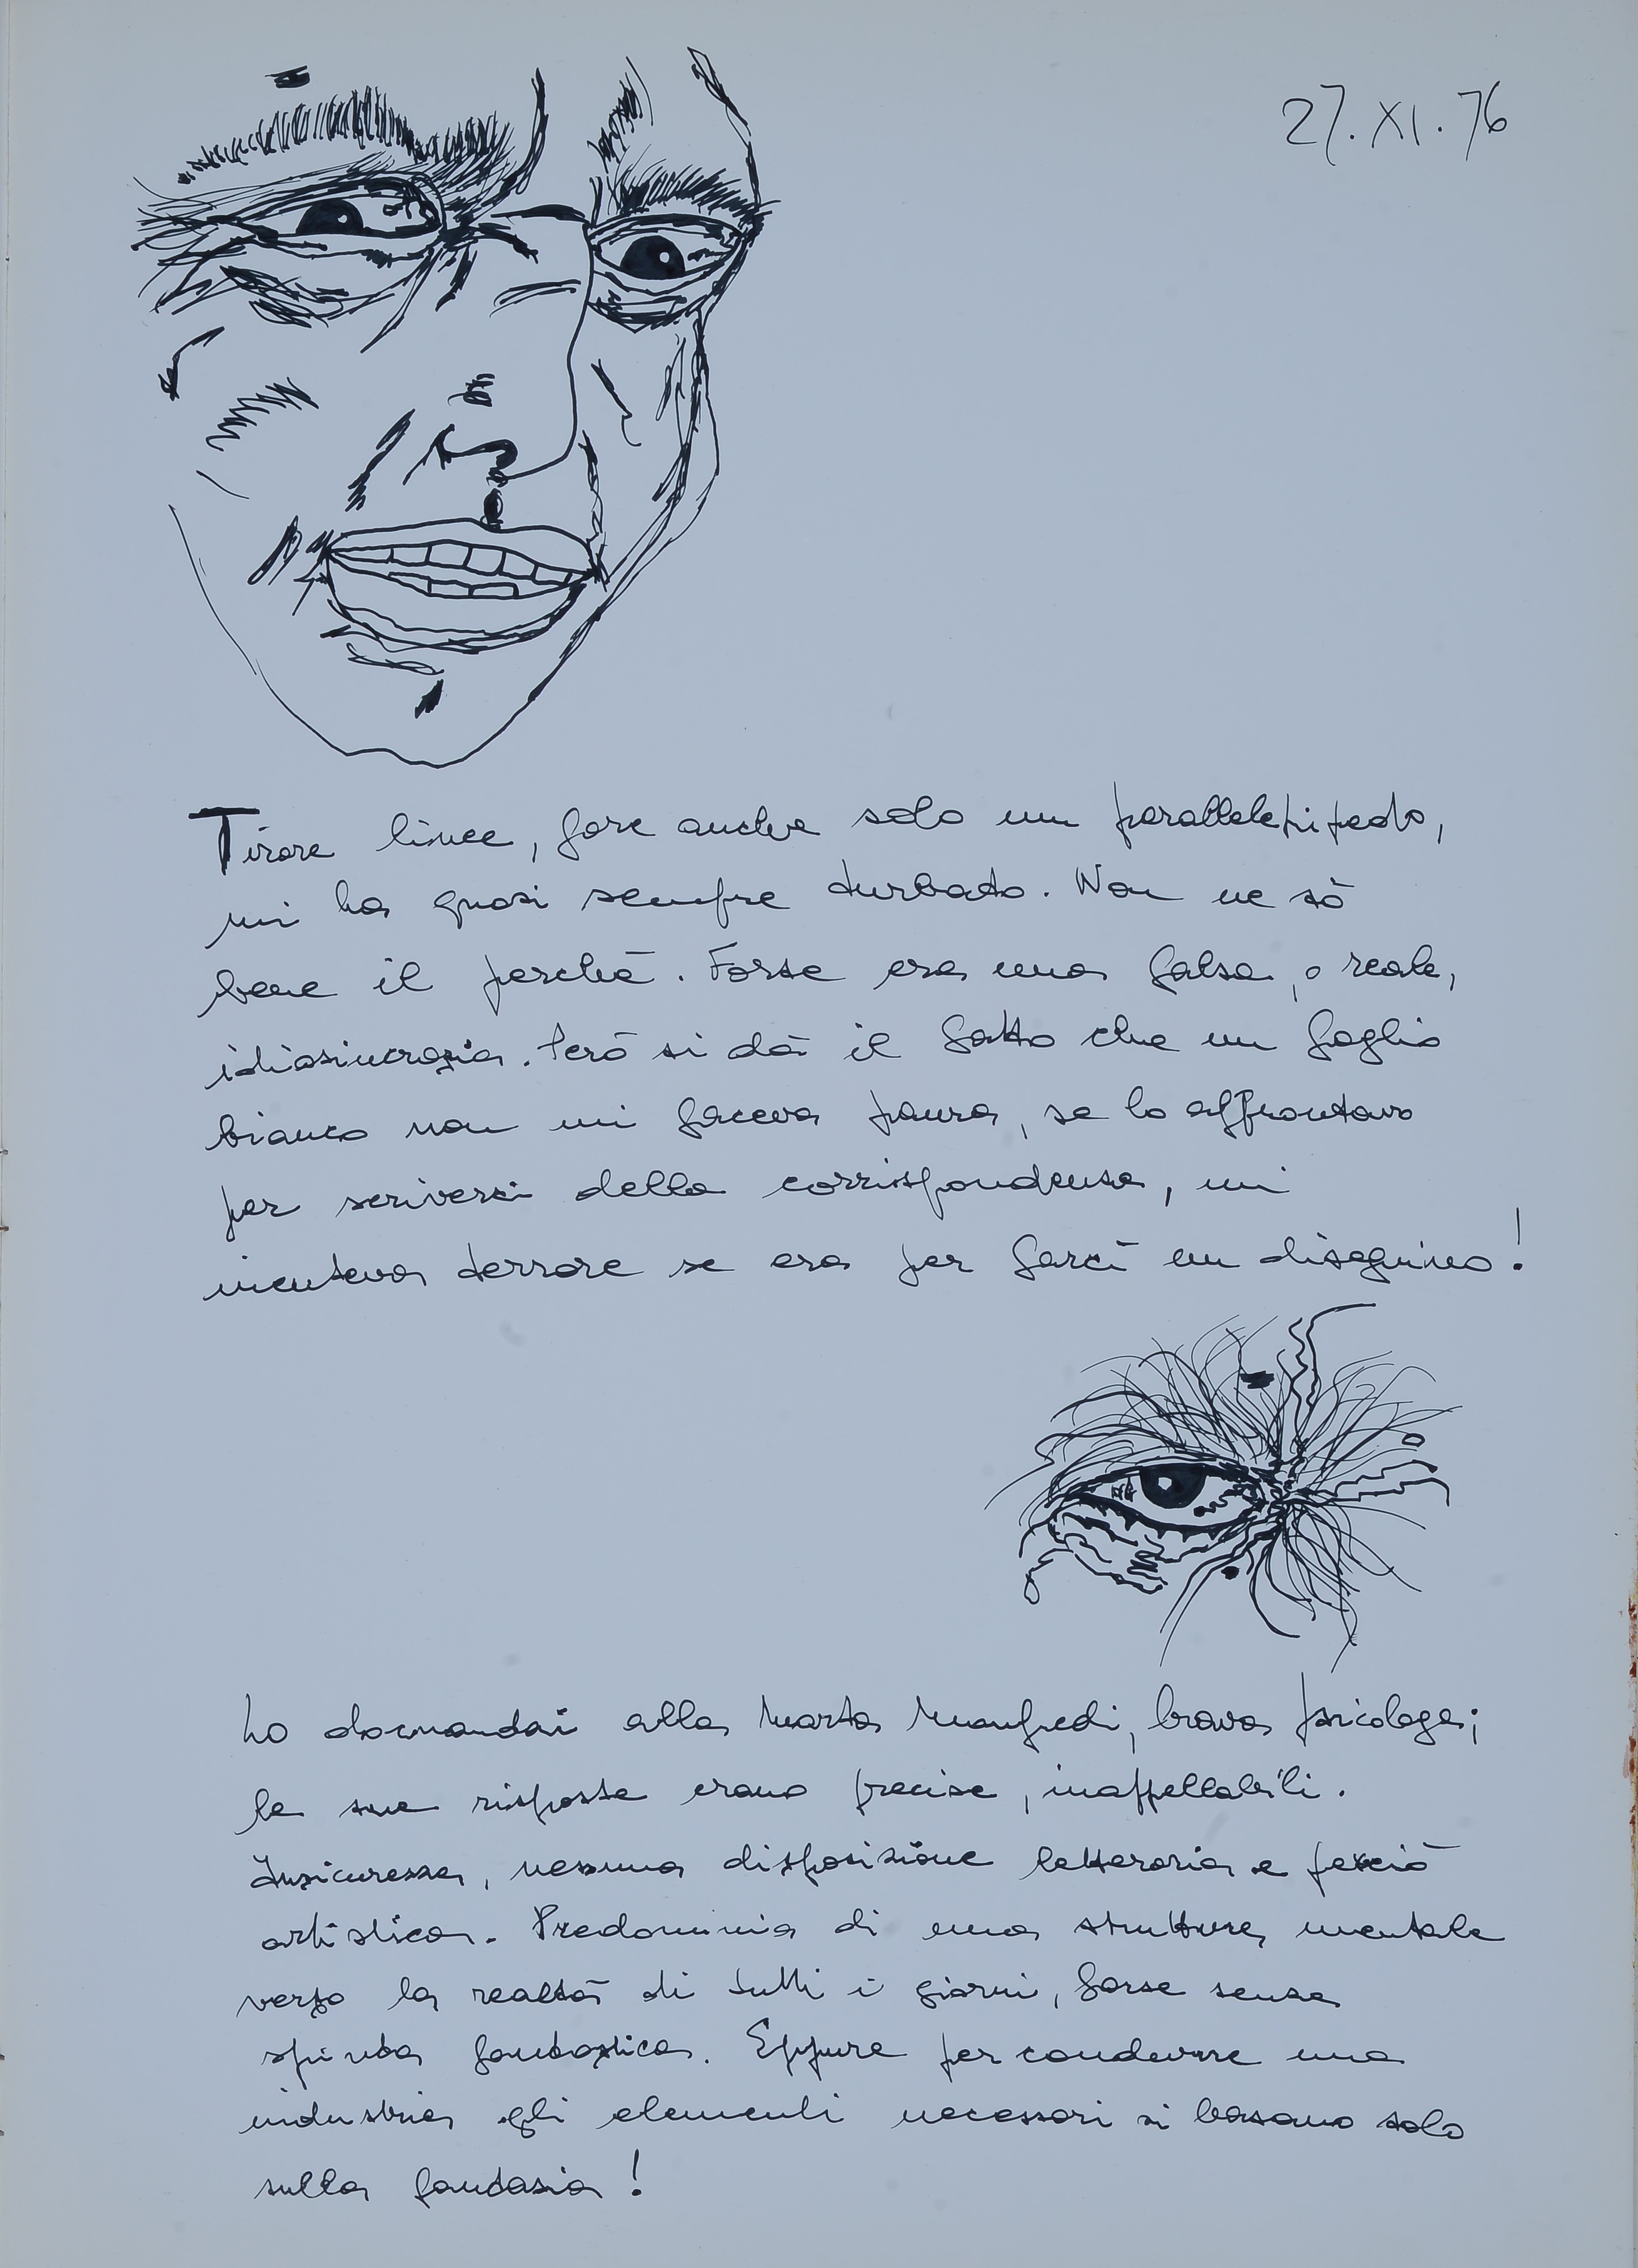 27. XI. 76
Tirare linee, fare anche solo un parallelepipedo,
mi ha quasi sempre turbato. Non ne sò
bene il perchè. Forse era una falsa, o reale,
idiosincrazia. Però si dà il fatto che un foglio
bianco non mi faceva paura, se lo affrontavo
per scriverci della corrispondenza, mi
incuteva terrore se era per farci un disegnino!
Lo domandai alla Marta Manfredi, brava psicologa;
le sue risposte erano precise, inappellabili.
Insicurezza, nessuna disposizione letteraria e perciò
artistica. Predominia di una struttura mentale
verso la realtà di tutti i giorni, forse senza
spinta fantastica. Eppure per condurre una
industria gli elementi necessari si basano solo
sulla fantasia!